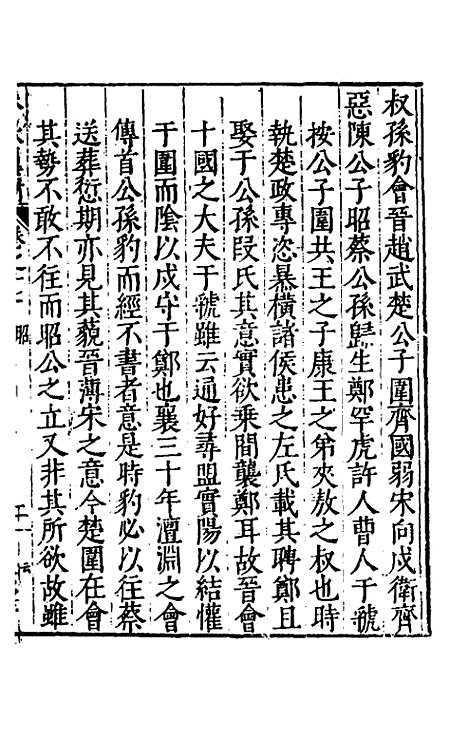 叔孫豹會晉趙武楚公子圍齊國弱宋向戍衛齊
惡陳公子昭蔡公孫歸生鄭罕虎許人曹人于虢
按公子圍共王之子康王之弟夾敖之叔也時
執楚政專恣暴橫諸侯患之左氏載其聘鄭且
娶于公孫叚氏其意實欲乗間襲鄭耳故晉會
十國之大夫于虢雖云通好尋盟實陽以結懽
于圍而陰以戍守于鄭也襄三十年澶淵之會
傳首公孫豹而經不書者意是時豹必以往蔡
送葬愆期亦見其藐晉薄宋之意今楚圍在會
其勢不敢不往而昭公之立又非其所欲故雖
昭